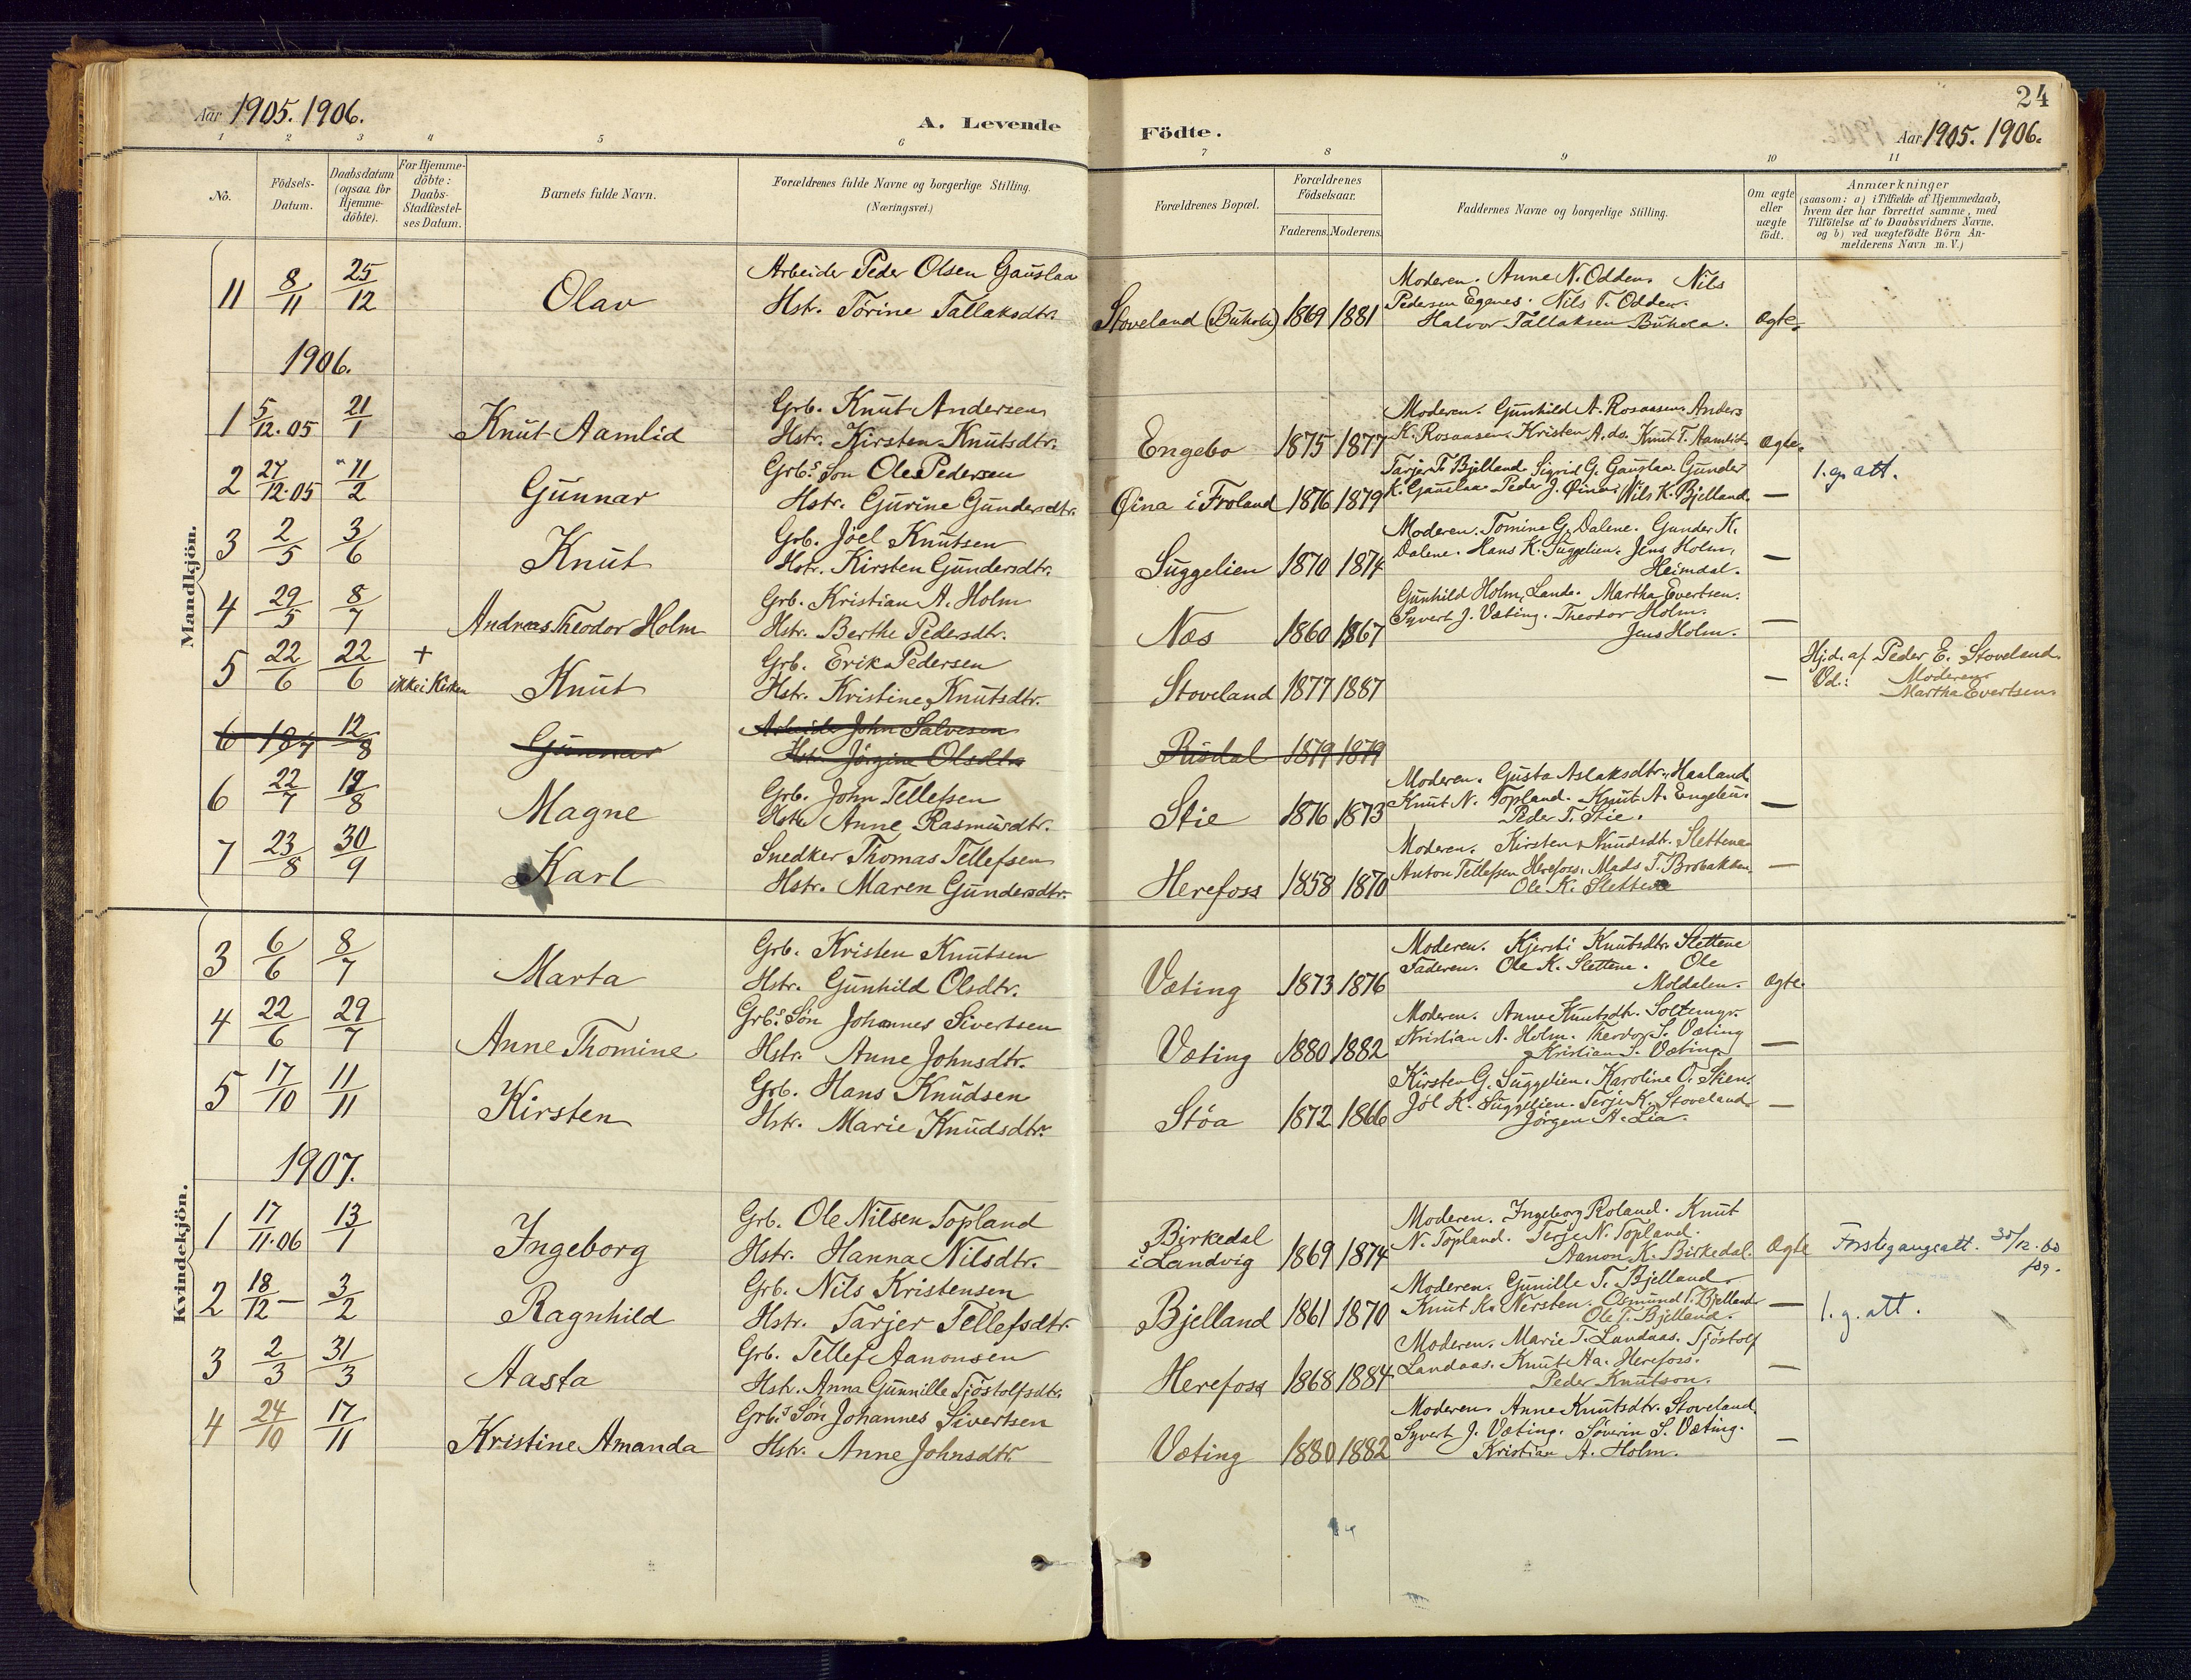 Aar 1905. 1906.
A. Levende
Födte.
24
Aar 1905. 1906.
1 2 3 4 5 6 7 8 9 10 11
No.
Födsels-Datum.
Daabsdatum (ogsaa for Hjemme-döbte).
For Hjemme-döbte: Daabs-Stadfæstel-ses Datum.
Barnets fulde Navn.
Forældrenes fulde Navne og borgerlige Stilling. (Næringsvei.)
Forældrenes Bopæl.
Forældrenes Födselsaar.
Faderens. Moderens.
Faddernes Navne og borgerlige Stilling.
Om ægte eller uægte födt.
Anmærkninger
(saasom: a) i Tilfælde af Hjemmedaab,
hvem der har forrettet samme, med
Tilföielse af to Daabsvidners Navne,
og b) ved uægtefödte Börn An-
melderens Navn m. V.)
Mandkjön.
11 8/11 25/12 Olav
Arbeider Peder Olsen Gauslaa
Hstr. Törine Tallaksdtr.
Stoveland 1869 1881
Moderen. Anne N. Odden. Nils
Pedersen Egenes. Nils T. Odden.
Halvor Tallaksen
Ægte.
1906.
1 5/12.05 21/1 Knut Aamlid
Grb. Knut Andersen
Hstr. Kirsten Knutsdtr.
Engebo 1875 1877
Moderen. Gunhild A. Rosaasen. Anders
K. Rosaasen. Kristen A. do. Knut T. Aamlid.
Ægte.
2 27/12.05 11/2 Gunnar
Grb.s Søn Ole Pedersen
Hstr. Gurine Gundersdtr.
Øina i Froland 1876 1879
Tarjer T. Bjelland. Sigrid G. Gauslaa. Gunder
K. Gauslaa. Peder J. Øina. Nils K. Bjelland.
—
1. g. att.
3 2/5 3/6 Knut
Grb. Jöel Knutsen
Hstr. Kirsten Gundersdtr.
Suggelien 1870 1874
Moderen. Tomine G. Dalene. Gunder K.
Dalene. Hans K. Suggelien. Jens Holm,
Heimdal.
—
4 29/5 8/7 Andreas Theodor Holm
Grb. Kristian A. Holm
Hstr. Berthe Pedersdtr.
Næs 1860 1867
Gunhild Holm, Lande. Martha Evertsen.
Syvert J. Væting. Theodor Holm.
Jens Holm.
—
5 22/6 22/6 + ikke i Kirken Knut
Grb. Erik Pedersen
Hstr. Kristine Knutsdtr.
Stoveland 1877 1887
—
Hj.d. af Peder E. Stoveland.
Vd.: Moderen
Martha Evertsen.
6 18/7 12/8 Gunnar
Arbeider John Salvesen
Hstr. Jörgine Olsdtr.
Risdal 1879 1879
6 22/7 19/8 Magne
Grb. John Tellefsen
Hstr. Anne Rasmusdtr.
Stie 1876 1873
Moderen. Gusta Aslaksdtr. Haaland.
Knut N. Topland. Knut A.
Peder T. Stie.
—
7 23/8 30/9 Karl
Snedker Thomas Tellefsen
Hstr. Maren Gundersdtr.
Herefoss 1858 1870
Moderen. Kirsten Knudsdtr. Slettene
Anton Tellefsen Herefoss. Mads T. Brobakken.
Ole K. Slettene
—
Kvindekjön.
3 6/6 8/7 Marta
Grb. Kristen Knutsen
Hstr. Gunhild Olsdtr.
Væting 1873 1876
Moderen. Kjersti Knutsdtr. Slettene
Faderen. Ole K. Slettene. Ole
Moldalen.
Ægte.
4 22/6 29/7 Anne Thomine
Grb.s Søn Johannes Sivertsen
Hstr. Anne Johnsdtr.
Væting 1880 1882
Moderen. Anne Knutsdtr.
Kristian A. Holm. Theodor S. Væting
Kristian S. Væting
—
5 17/10 11/11 Kirsten
Grb. Hans Knudsen
Hstr. Marie Knudsdtr.
Stöa 1872 1866
Kirsten G. Suggelien. Karoline O. Skien.
Jöl K. Suggelien. Terje K. Stoveland.
Jörgen A. Lia.
—
1907.
1 17/11.06 13/1 Ingeborg
Grb. Ole Nilsen Topland
Hstr. Hanna Nilsdtr.
Birkedal
i Landvig 1869 1874
Moderen. Ingeborg Roland. Knut
N. Topland. Terje N. Topland.
Aanon K. Birkedal.
Ægte
Förstegangsatt. 30/12.60
2 18/12 — 3/2 Ragnhild
Grb. Nils Kristensen
Hstr. Tarjer Tellefsdtr.
Bjelland 1861 1870
Moderen. Gunille T. Bjelland
Knut K. Nersten. Osmund T. Bjelland
Ole T. Bjelland.
—
1. g. att.
3 2/3 31/3 Aasta
Grb. Tellef Aanonsen
Hstr. Anna Gunnille Tjöstolfsdtr.
Herefoss 1868 1884
Moderen. Marie T. Landaas. Tjöstolf
Landaas. Knut Aa. Herefoss.
Peder Knutson.
—
4 24/10 17/11 Kristine Amanda
Grb.s Søn Johannes Sivertsen
Hstr. Anne Johnsdtr.
Væting 1880 1882
Moderen. Anne Knutsdtr. Stoveland.
Syvert J. Væting. Söverin S. Væting.
Kristian A. Holm.
—